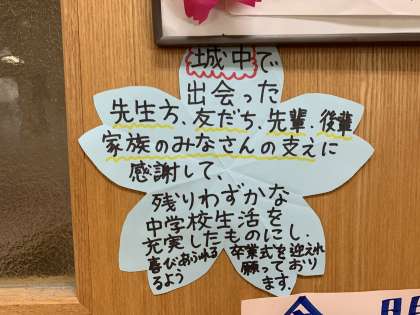 城中で
出会った
先生方、友だち、先輩、後輩
家族のみなさんの支えに
感謝して、
残りわずかな
中学校生活を
充実したものにし、
喜びあふれる卒業式を迎えれ
るよう願っており
ます。